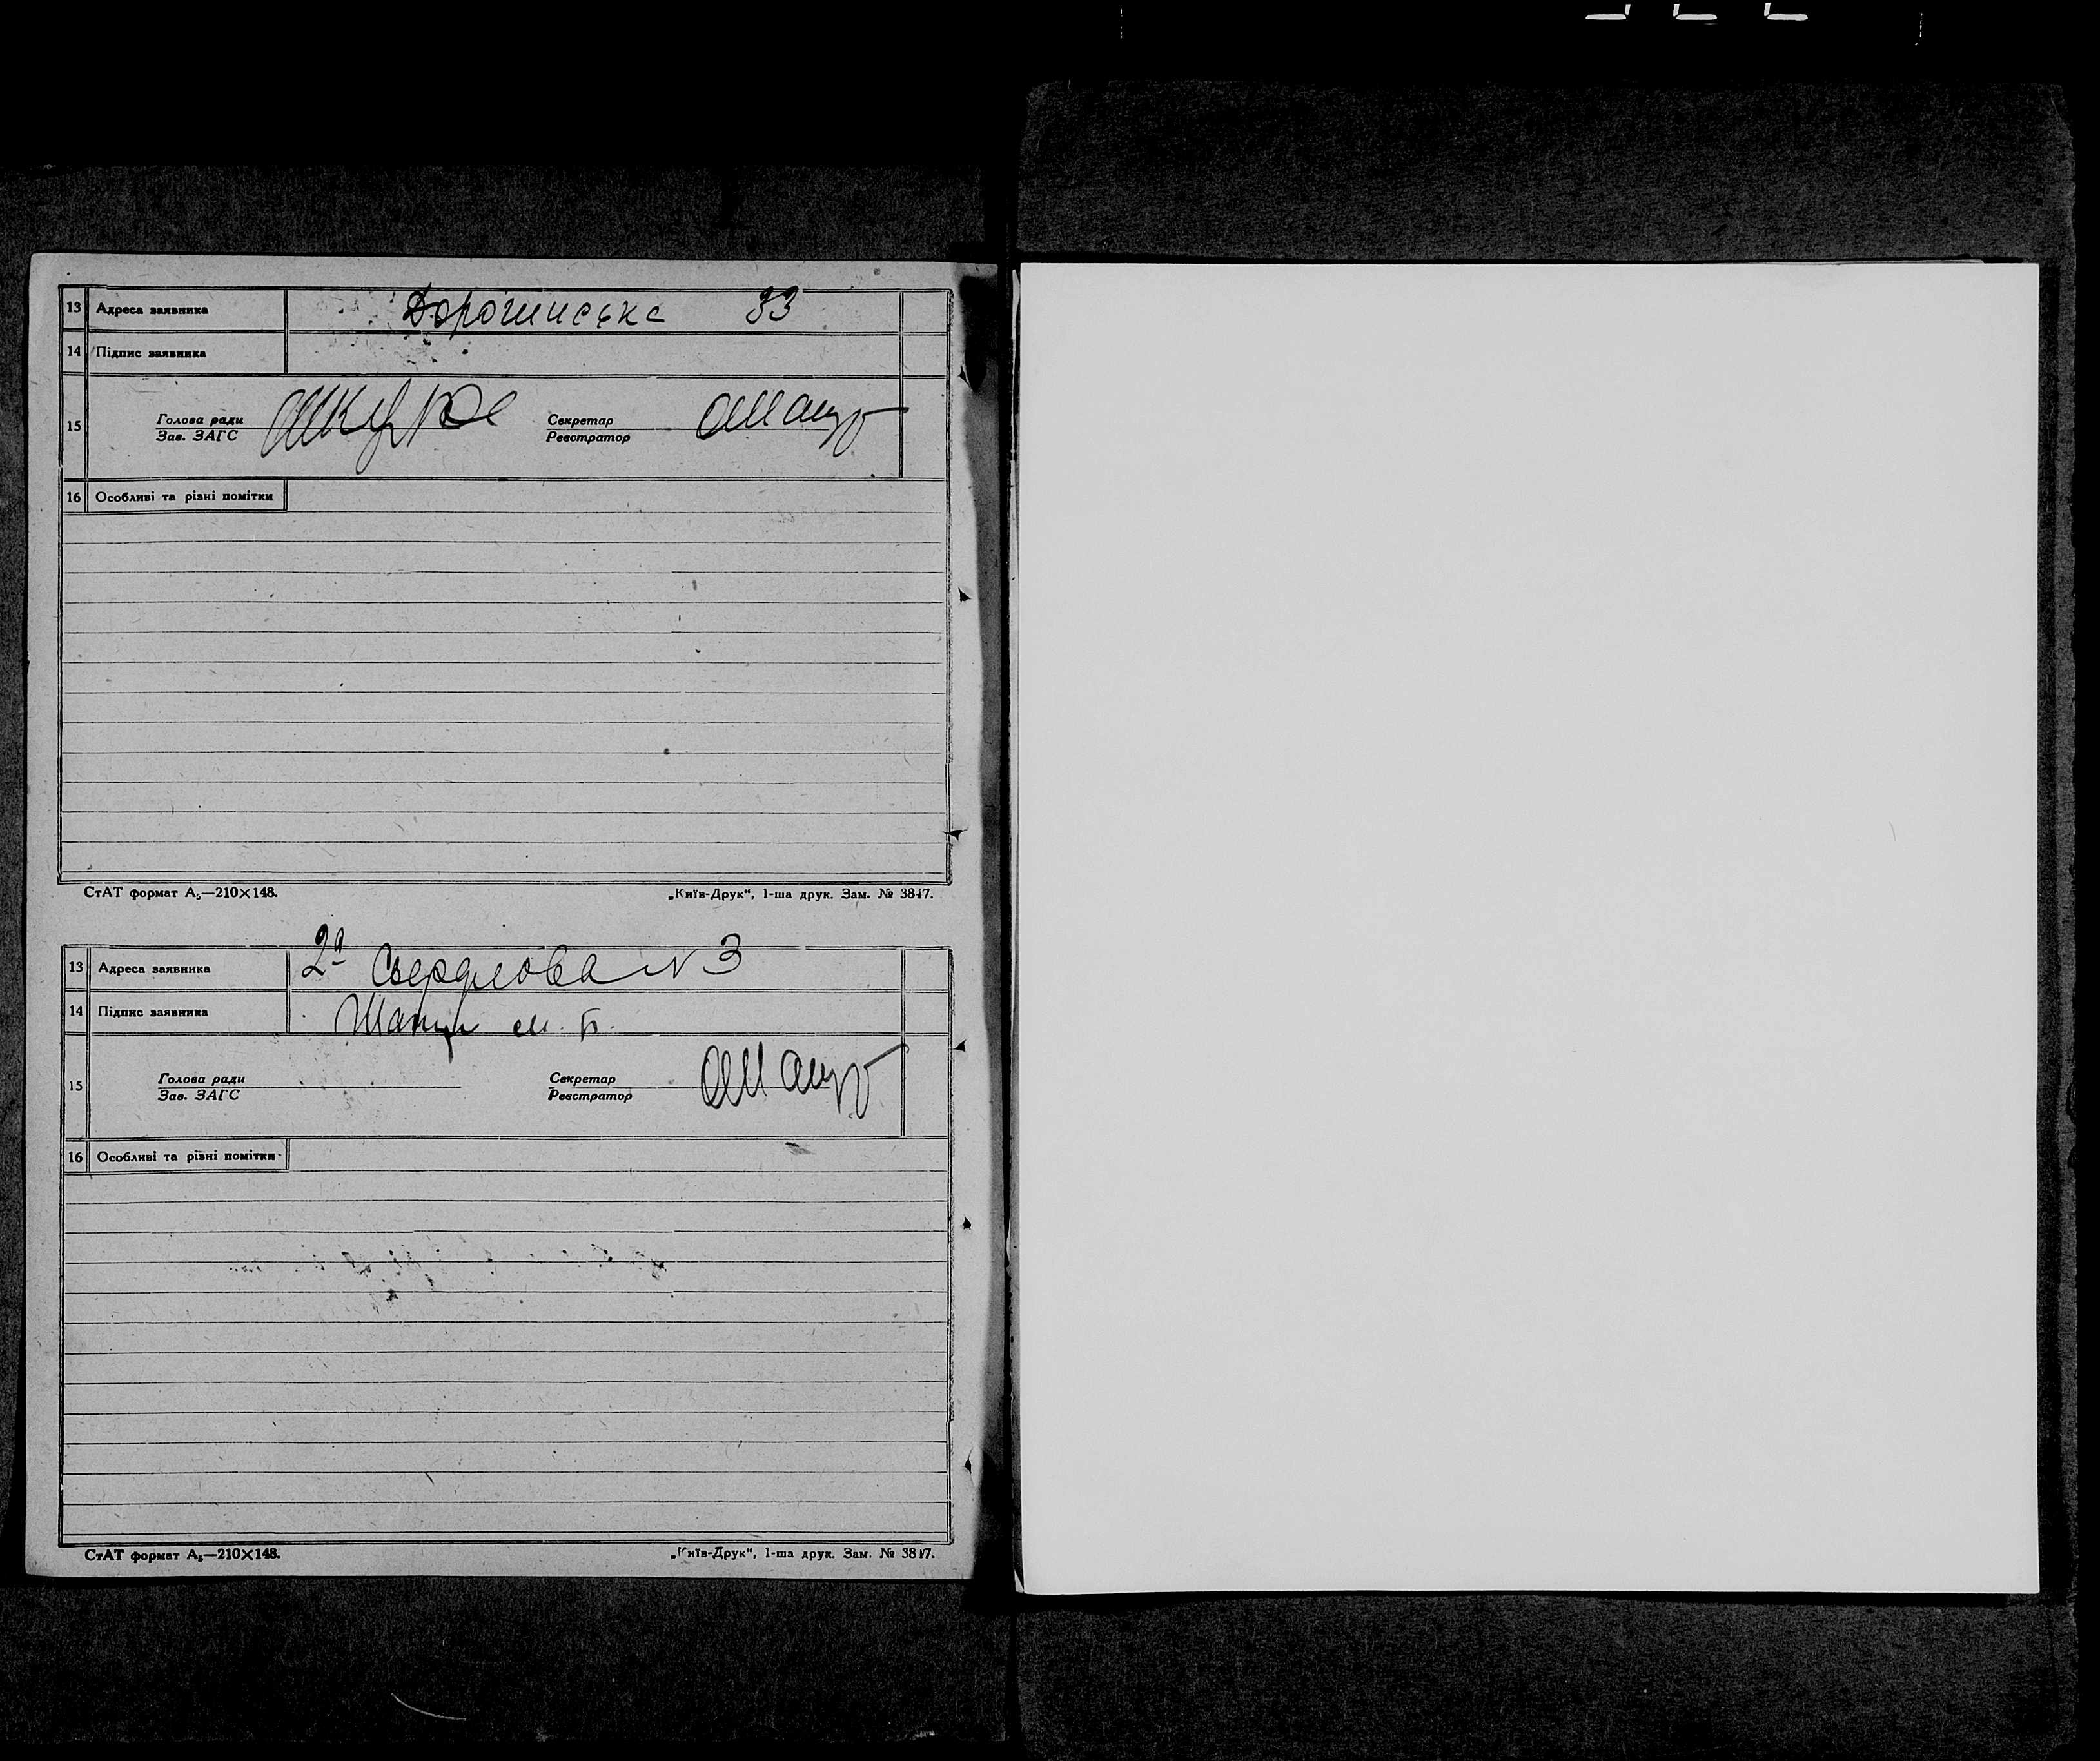 13 Адреса заявника 33
14 Підпис заявника
15 Голова ради Секретар
Зав. ЗАГС Реєстратор
16 Особливі та різні помітки
СтАТ формат А₅—210×148. „Київ-Друк“, 1-ша друк. Зам. № 3847.
13 Адреса заявника 2а Свердлова N 3
14 Підпис заявника М. Б.
15 Голова ради Секретар
Зав. ЗАГС Реєстратор
16 Особливі та різні помітки
СтАТ формат А₅—210×148. „Київ-Друк“, 1-ша друк. Зам. № 3847.